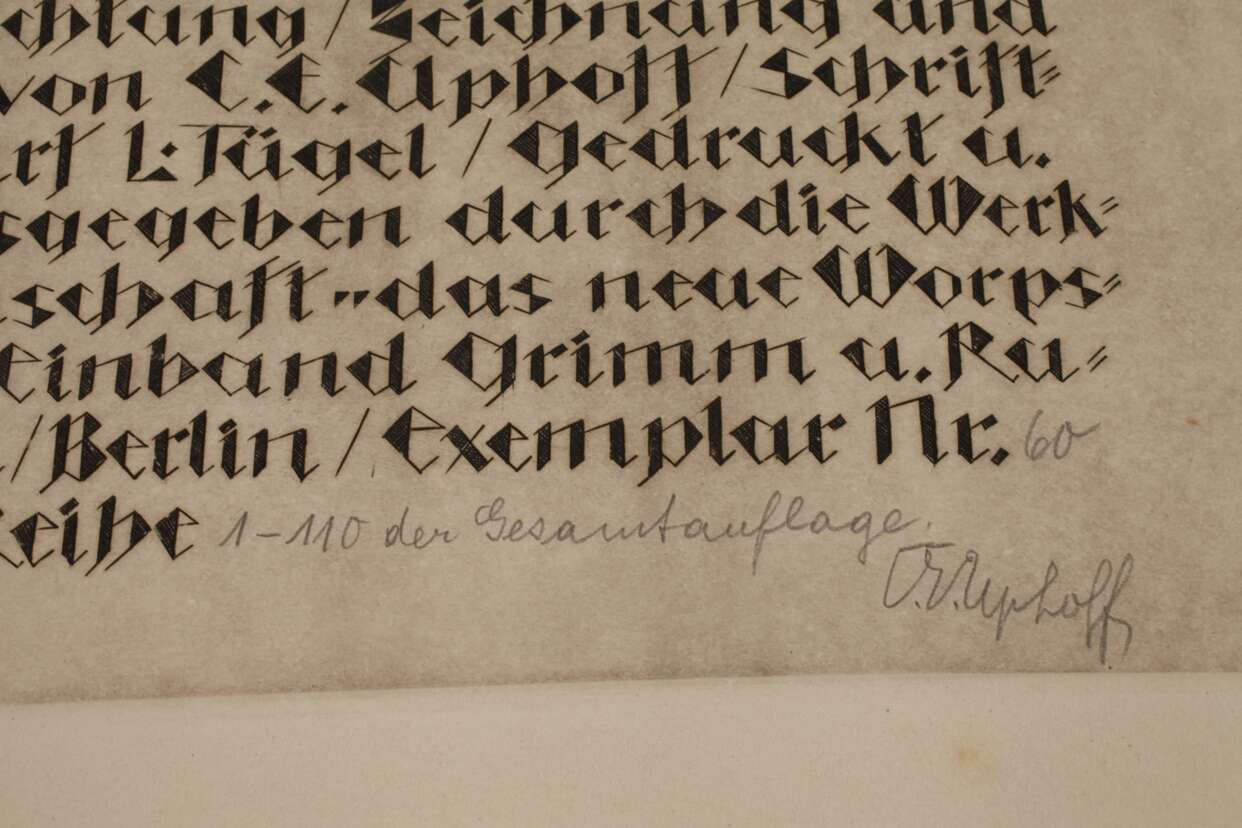 chtung / Zeichnung und
von C. E. Uphoff / Schrift=
urf L. Tügel / Gedruckt u.
sgegeben durch die Werk=
schaft „das neue Worps=
Einband Grimm u. Ru=
/ Berlin / Exemplar Nr. 60
Reihe 1–110 der Gesamtauflage.
C.E. Uphoff